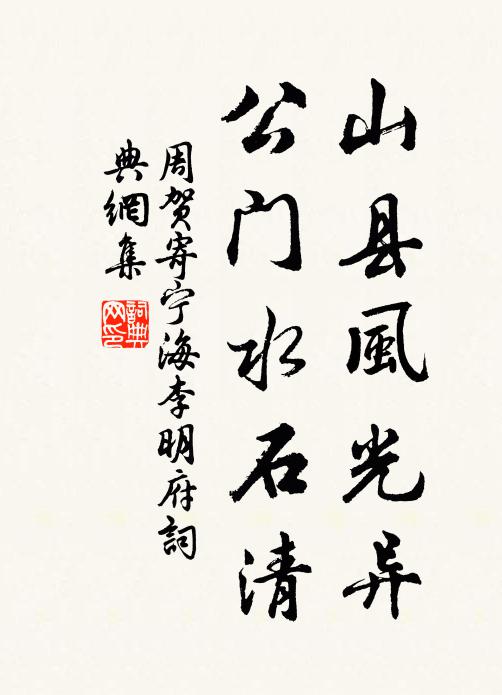 山县風光异
公门水石清
周贺寄宁海李明府詞
典網集
詞典
网印